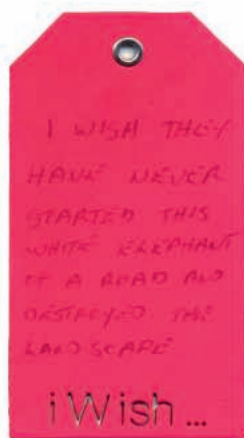 I WISH THEY
HAVE NEVER
STARTED THIS
WHITE ELEPHANT
OF A ROAD AND
DESTROYED THE
LANDSCAPE
iWish...